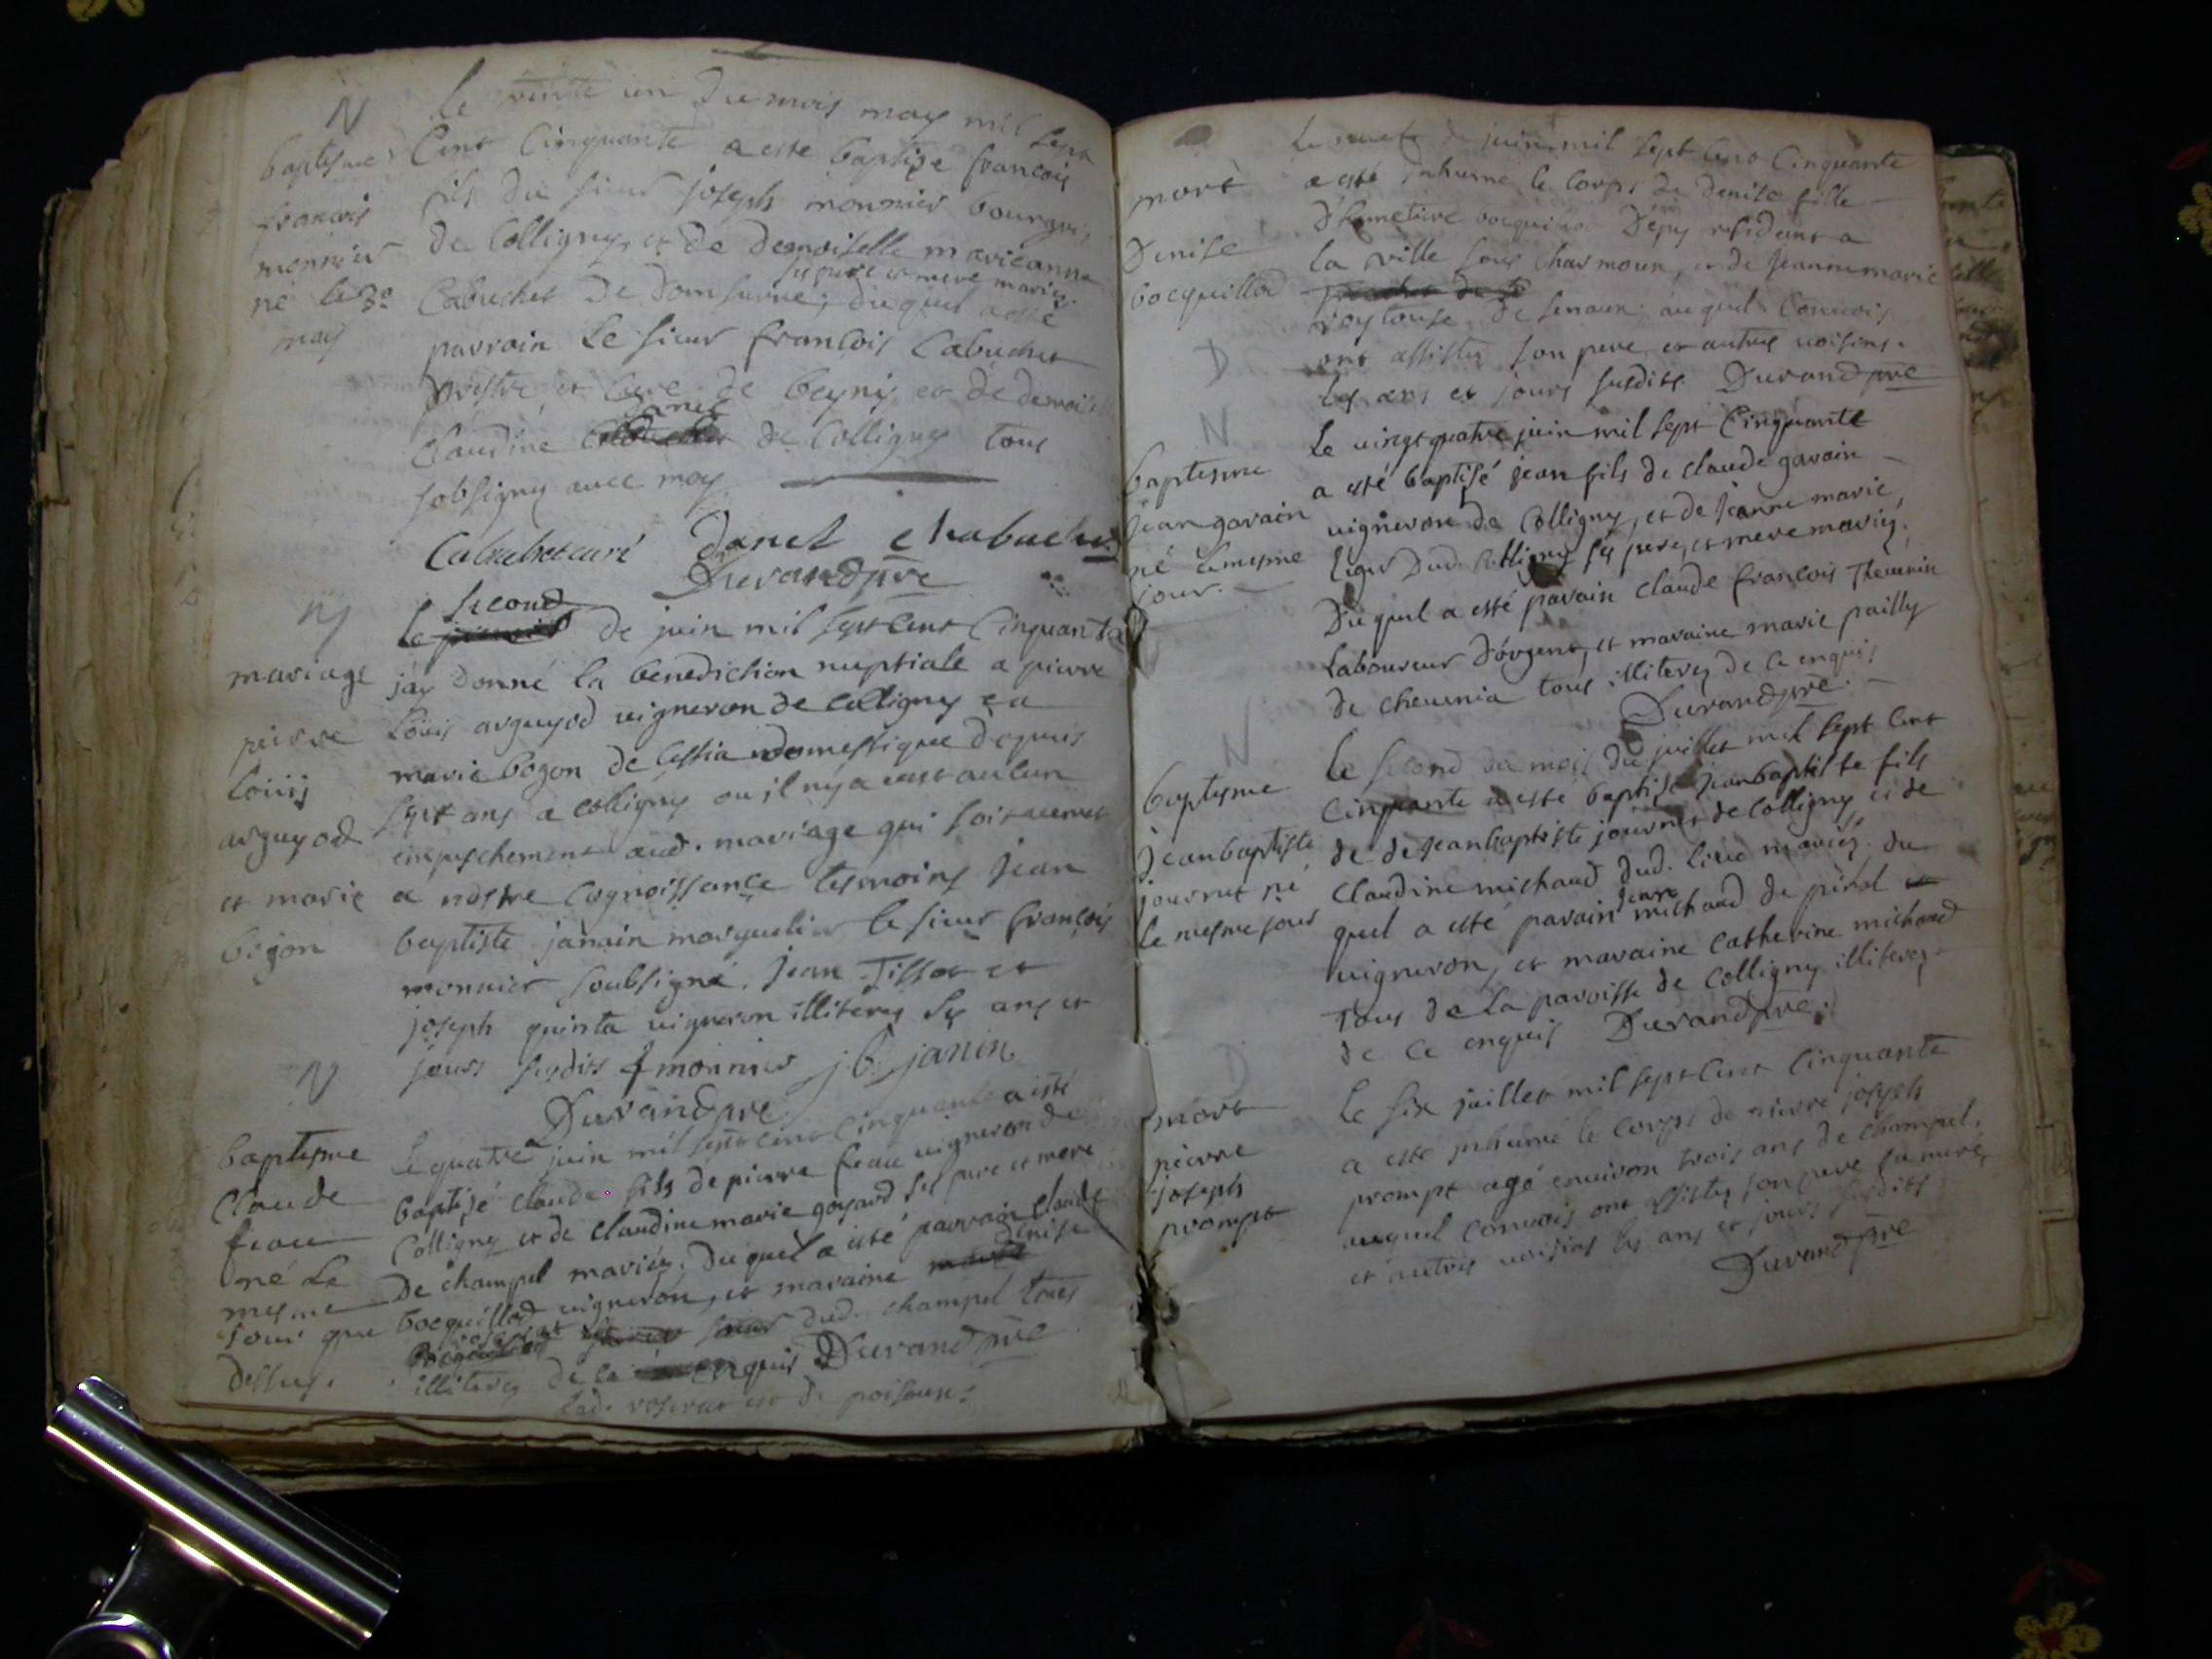 N
baptesme
francois
monnier
né le 20
may
Le trente un du mois may mil sept
Cent Cinquante a esté baptisé francois
fils du sieur joseph monnier bourgois
de Colligny, et de demoiselle marieanne
ses pere et mere mariez.
Cabuchet de domsurre, duquel a esté
parrain le sieur francois Cabuchet
prestre et Cure de beyny et de demoiselle
danet
Claudine de Colligny tous
sobsigny avec moy
Cabuchet curé Danet Chabuchet
Durand pre
M
mariage
peirre
Loüis
arguyod
et marie
bogon
second
le premier de juin mil sept Cent Cinquante
jay donné la benediction nuptiale a pierre
Loüis arguyod vigneron de Colligny ea
marie bogon de Cessia domestique depuis
sept ans a Colligny ou il ny a eust aucun
empeschement aud. mariage qui soit venut
a nostre Cognoissance tesmoins Jean
baptiste janain marguelier le sieur françois
monnier soubsigné. Jean Tissot et
joseph quinta vigneron illiterez les ans et
jours susdits f monnier j. b. janin
Durand pre
N
baptesme
Claude
feau
né le
mesme
jour que
dessus.
Le quatre juin mil sept cent Cinquante a esté
baptisé Claude fils de pierre feau vigneron de
Colligny et de Claudine marie goyard ses pere et mere
de champel mariez. duquel a esté parrain Claude
bocquillod vigneron, et maraine denise
rosserat dud. champel tous
illiterez de ce enquis Durand pre
lad. rosserat est de poisoux.
mort
Denise
bocquillod
D
Le neufe de juin mil sept Cens Cinquante
a esté inhumé le Corps de denise fille
d'humetire bocquillod D'épy residant a
la ville sous Charmoux, et de Jeannemarie
roytouse de senaux; auquel Convois
ont assistez son pere et autres voisins.
les ans et jours susdits Durand pre
N
baptesme
Jean garain
né le mesme
jour.
Le vingt quatre juin mil sept Cinquante
a esté baptisé jean fils de Claude garain
vigneron de Colligny, et de Jeanne marie
leger dud. Colligny ses pere, et mere mariez.
Duquel a esté parain Claude françois Thevenin
Laboureur d'orgent, et maraine marie pailly
de chevenia tous illiterez de ce enquis
Durand pre.
N
baptesme
Jeanbaptiste
journet né
le mesme jour
Le second du mois du juillet mil sept Cent
Cinquante a esté baptisé jeanbaptiste fils
de de jeanbaptiste journet de Colligny et de
Claudine michaud dud. lieu mariéz. du
jean
quel a esté parain michaud de pirol
vigneron, et maraine Catherine michaud
Tous de la paroisse de Colligny illiterez
de ce enquis Durand pre.
D
mort
pierre
joseph
prompt
Le six juillet mil sept Cent Cinquante
a esté inhumé le Corps de pierre joseph
prompt agé environ trois ans de champel.
auquel Convois ont assistez son pere sa mere,
et autres voisins les ans et jours susdits
Durand pre